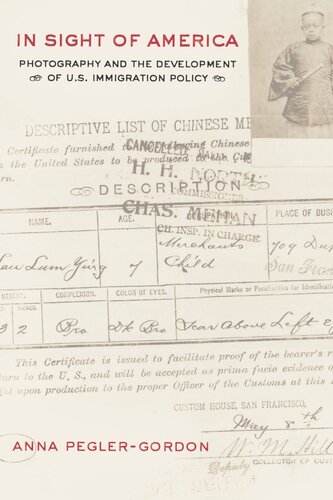 IN SIGHT OF AMERICA
PHOTOGRAPHY AND THE DEVELOPMENT
OF U.S. IMMIGRATION POLICY
DESCRIPTIVE LIST OF CHINESE ME
Certificate furnished to the following Chinese
the United States to be produced to the Cu
rn.
CANCELLED
H. H. NORTH
COMMISSIONER
DESCRIPTION
CHAS. MEHAN
CH. INSP. IN CHARGE
NAME. AGE. PLACE OF BUSI
Lum Ying 7 Merchants Child 709 Du
San Fran
HEIGHT. COMPLEXION. COLOR OF EYES. Physical Marks or Peculiarities for Identificatio
3 2 Bro Dk Bro Scar Above Left E
This Certificate is issued to facilitate proof of the bearer's r
turn to the U. S., and will be accepted as prima facie evidence o
ht upon production to the proper Officer of the Customs at this
CUSTOM HOUSE, SAN FRANCISCO,
May 8th
ANNA PEGLER-GORDON
Deputy COLLECTOR OF CUST